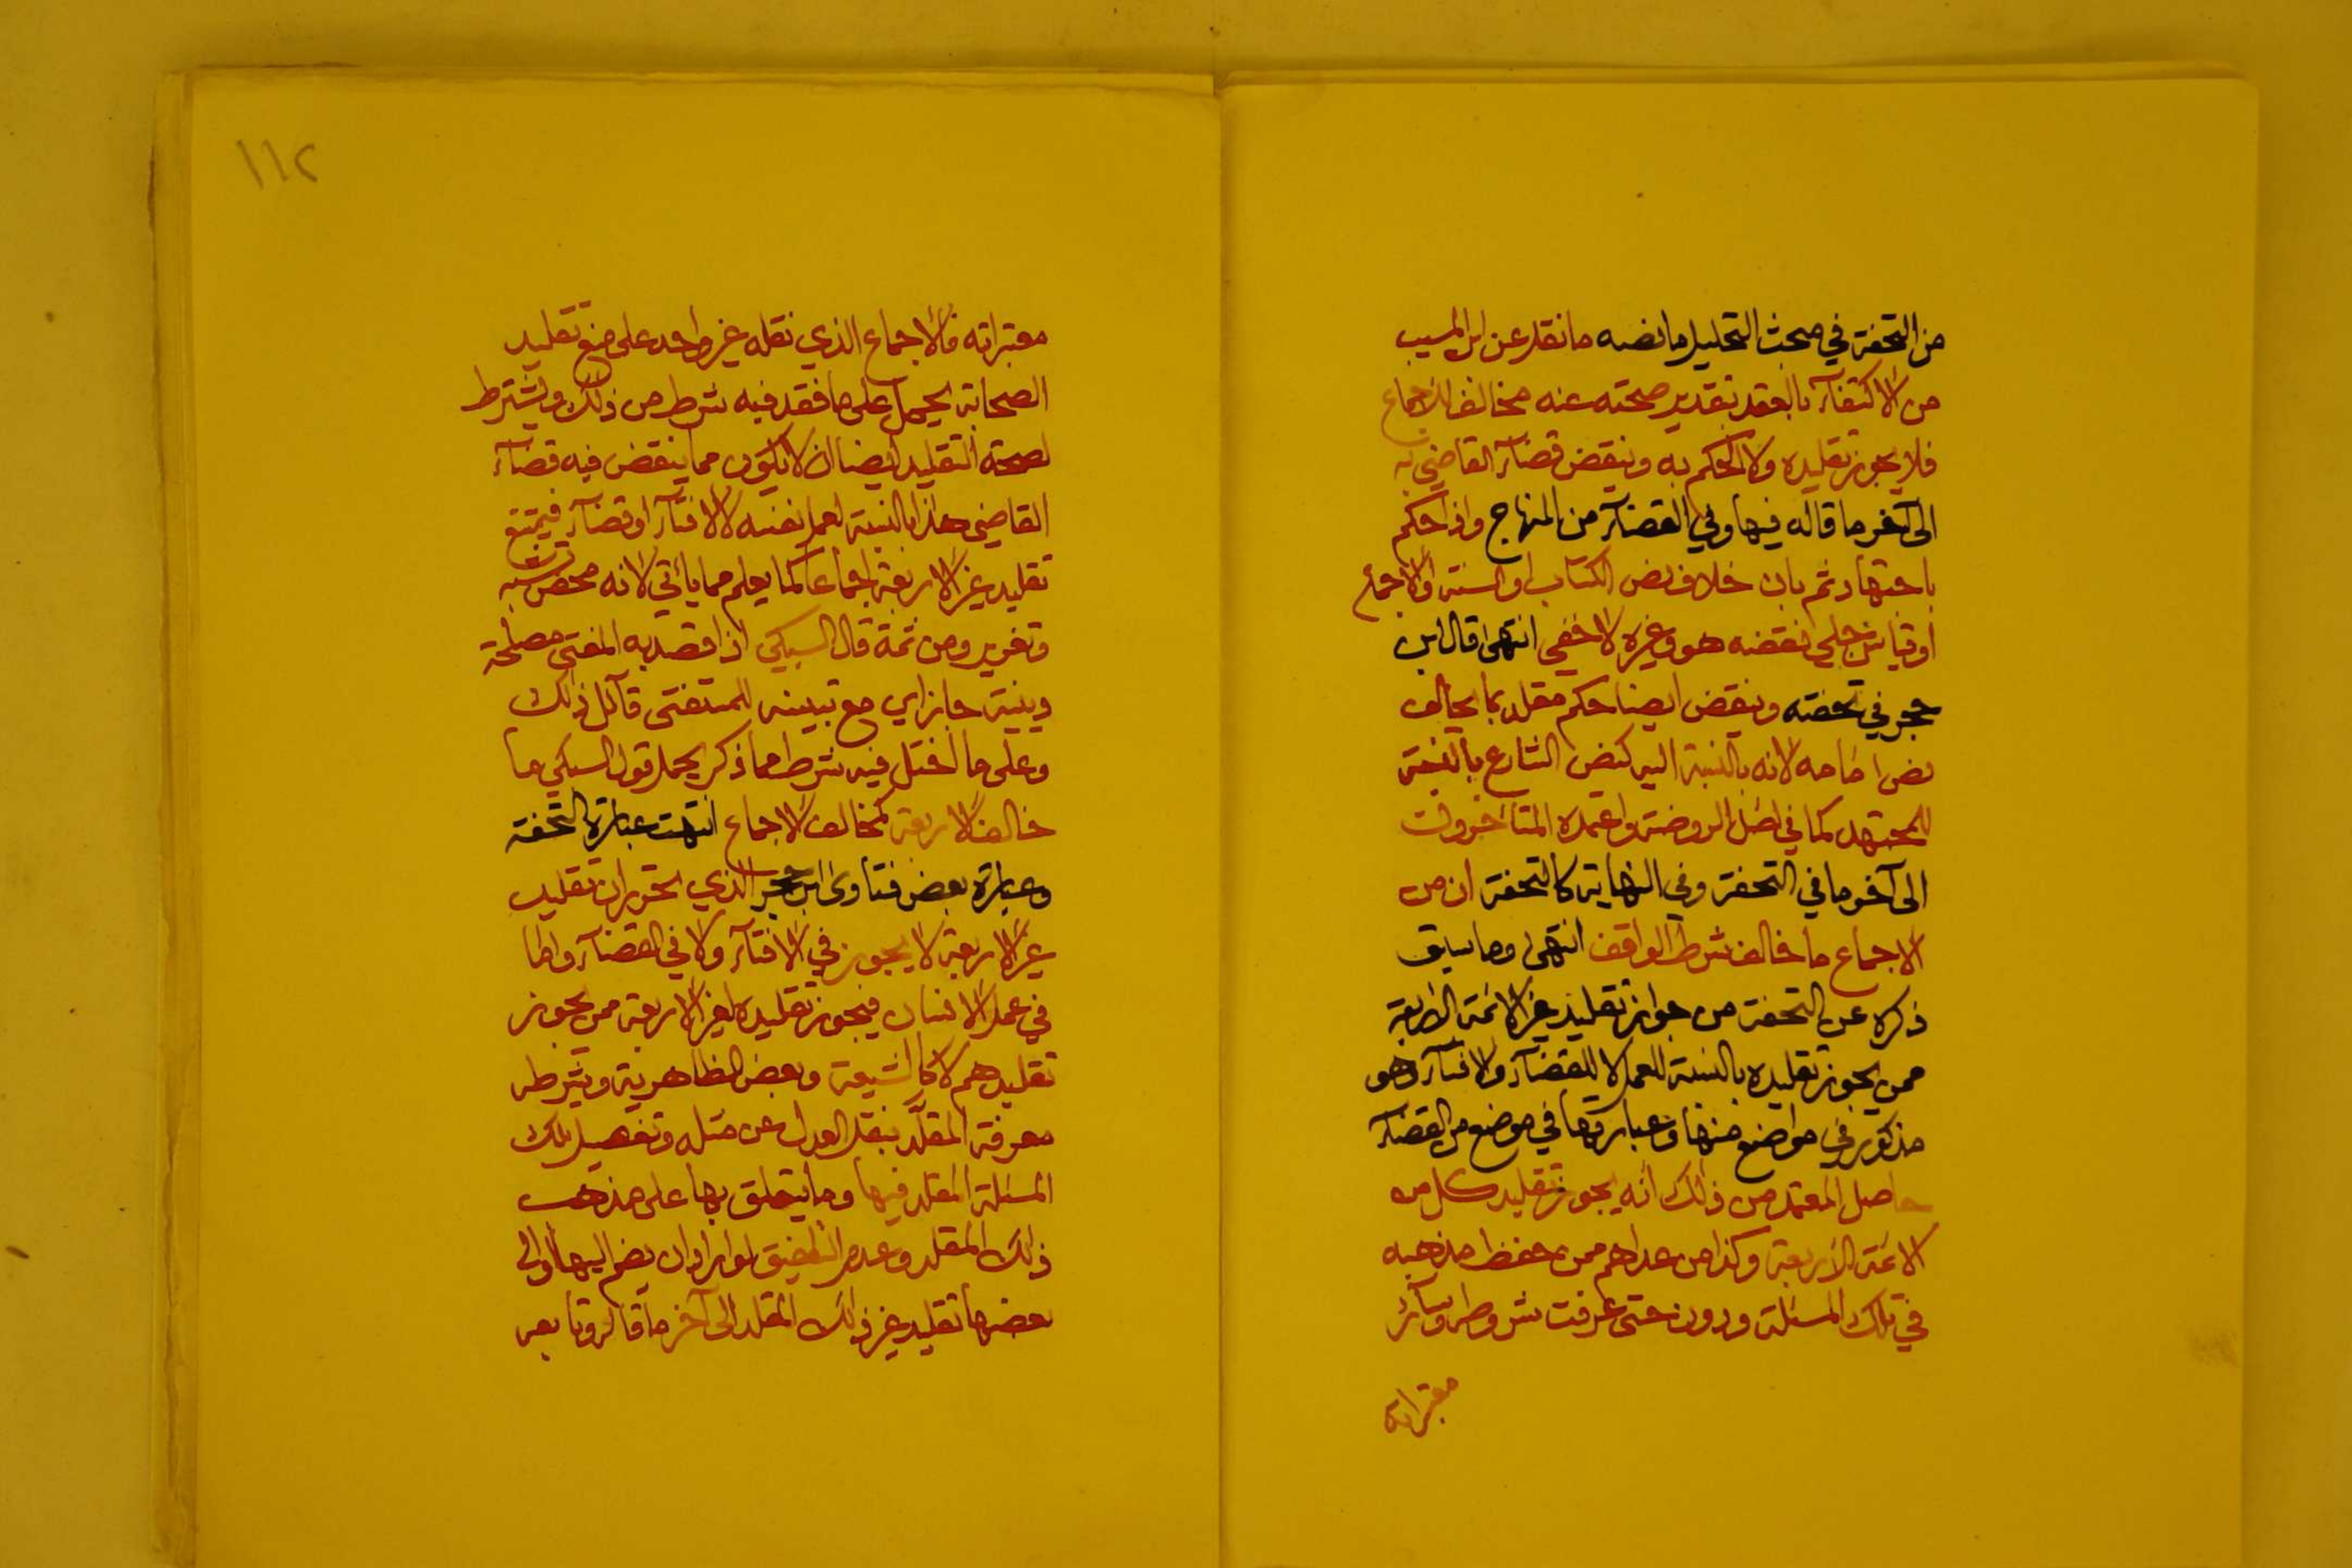 من التحفة في مبحث التحليل ما نصه ما نقل عن ابن المسيب
من الاكتفآء بالعقد بتقدير صحته عنه مخالف للاجماع
فلا يجوز تقليده ولا الحكم به وينقض قضآء القاضي به
الى آخر ما قاله فيها وفي القضآء من المنهاج واذا حكم
باجتهاد ثم بان خلاف نص الكتاب او السنة او الاجماع
او قياس جلي نقضه هو وغيره لا خفي انتهى قال ابن
حجر في تحفته وينقض ايضا حكم مقلد بما يخالف
نص امامه لانه بالنسبة اليه كنص الشارع بالنسبة
للمجتهد كما في اصل الروضة واعتمده المتأخرون
الى آخر ما في التحفة وفي النهاية كالتحفة ان من
الاجماع ما خالف شرط الواقف انتهى وما سبق
ذكره عن التحفة من جواز تقليد غير الائمة الاربعة
ممن يجوز تقليده بالنسبة للعمل لا للقضآء والافتآء وهو
مذكور في مواضع منها وعبارتها في موضع من القضآء
حاصل المعتمد من ذلك انه يجوز تقليد كل من
الائمة الاربعة وكذا من عداهم ممن حفظ مذهبه
في تلك المسئلة ودون حتى عرفت شروطه وسآئر
معتبراته
١١٢
معتبراته فالاجماع الذي نقله غير واحد على منع تقليد
الصحابة يحمل على ما فقد فيه شرط من ذلك ويشترط
لصحة التقليد ايضا ان لا يكون مما ينقض فيه قضآء
القاضي هذا بالنسبة لعمل نفسه لا لافتآء او قضآء فيمتنع
تقليد غير الاربعة اجماعا كما يعلم مما يأتي لانه محض تشبه
وتغرير ومن ثمة قال السبكي اذا قصد به المفتي مصلحة
دينية جاز اي مع تبيينه للمستفتي قآئل ذلك
وعلى ما اختل فيه شرط مما ذكر يحمل قول السبكي ما
خالف الاربعة كمخالف الاجماع انتهت عبارة التحفة
وعبارة بعض فتاوى ابن حجر الذي تحرر ان تقليد
غير الاربعة لا يجوز في الافتآء ولا في القضآء واما
في عمل الانسان فيجوز تقليده لغير الاربعة ممن يجوز
تقليدهم لا كالشيعة وبعض الظاهرية ويشرط
معرفة المقلَّد بنقل العدل عن مثله وتفصيل تلك
المسئلة المقلد فيها وما يتعلق بها على مذهب
ذلك المقلد وعدم التلفيق لو اراد ان يضم اليها او الى
بعضها تقليد غير ذلك المقلد الى آخر ما قاله وتابعه